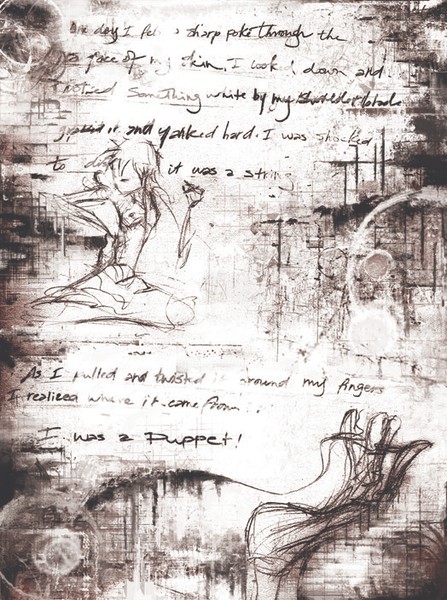 One day I felt a sharp poke through the
surface of my skin. I look down and
noticed something white by my shoulder blade
and yanked hard. I was shocked
to it was a string
As I pulled and twisted it around my fingers
I realized where it came from...
I was a Puppet!